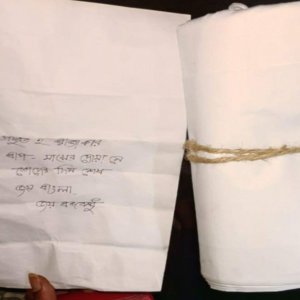 প্রস্তুত হ রাজাকার
বাপ- মায়ের দোয়া নে
তোদের দিন শেষ
জয় বাংলা
জয় বঙ্গবন্ধু